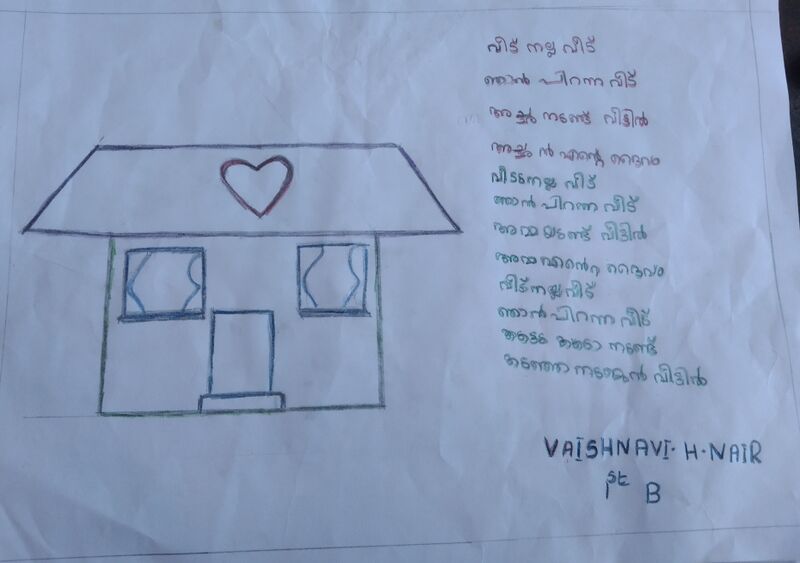 വീട് നല്ല വീട്
ഞാൻ പിറന്ന വീട്
അച്ഛൻ നടണ്ട് വീട്ടിൽ
അച്ഛൻ എന്റെ ദൈവം
വീട് നല്ല വീട്
ഞാൻ പിറന്ന വീട്
അമ്മ യുണ്ട് വീട്ടിൽ
അമ്മ എന്റെ ദൈവം
വീട് നല്ല വീട്
ഞാൻ പിറന്ന വീട്
വീട്ടിൽ
VAISHNAVI. H. NAIR
1st B